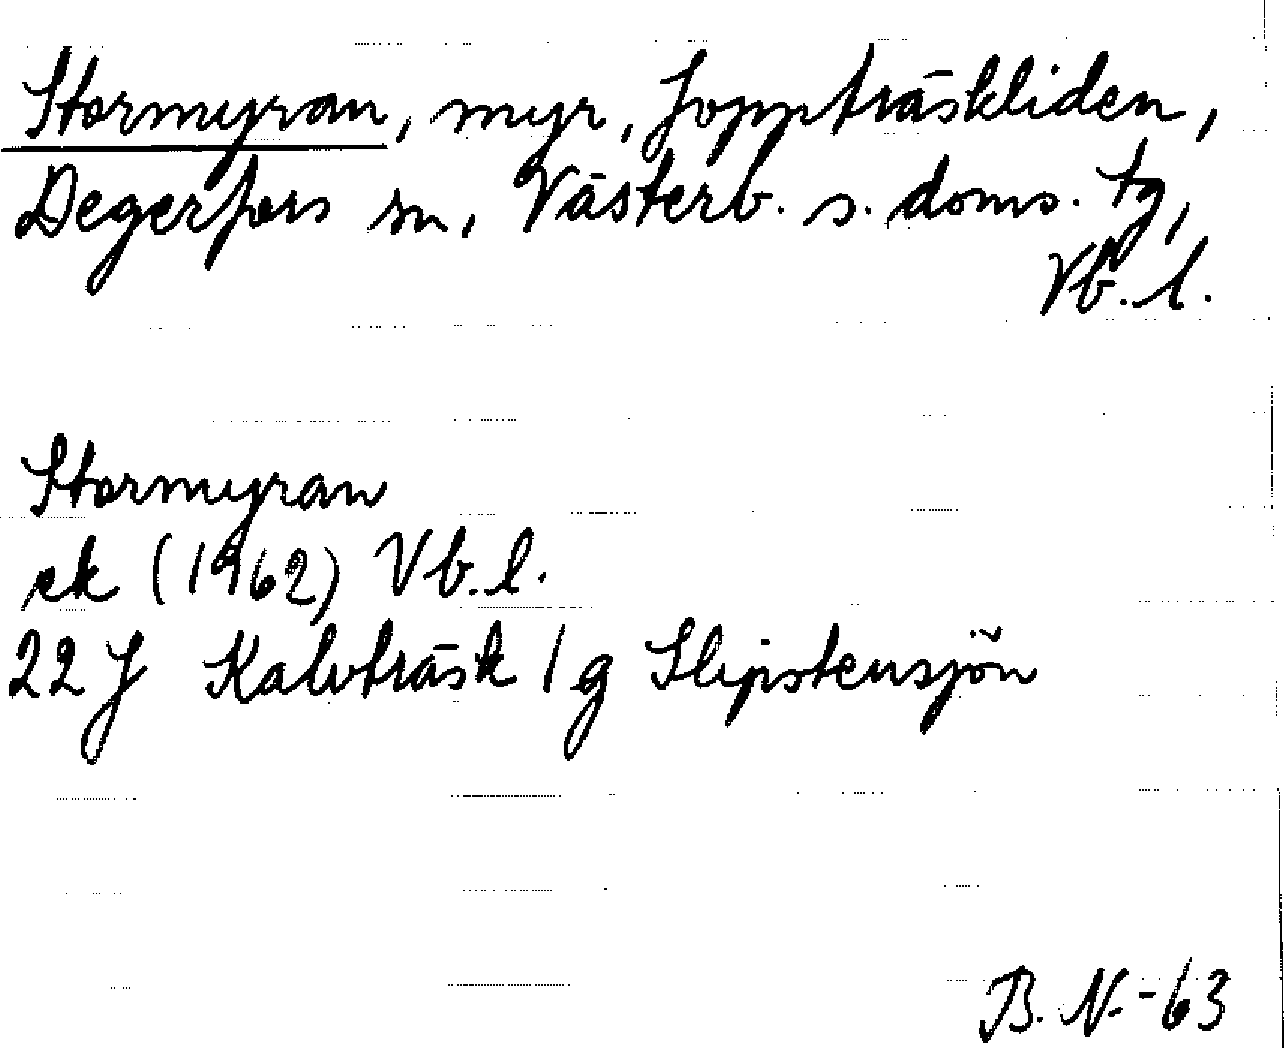 Stormyran, myr, Joppträskliden,
Degerfors sn, Västerb. s. doms. tg,
Vb. l.
Stormyran
ek (1962) Vb. l.
22 J Kalvträsk 1 g Slipstensjön
B. N. -63